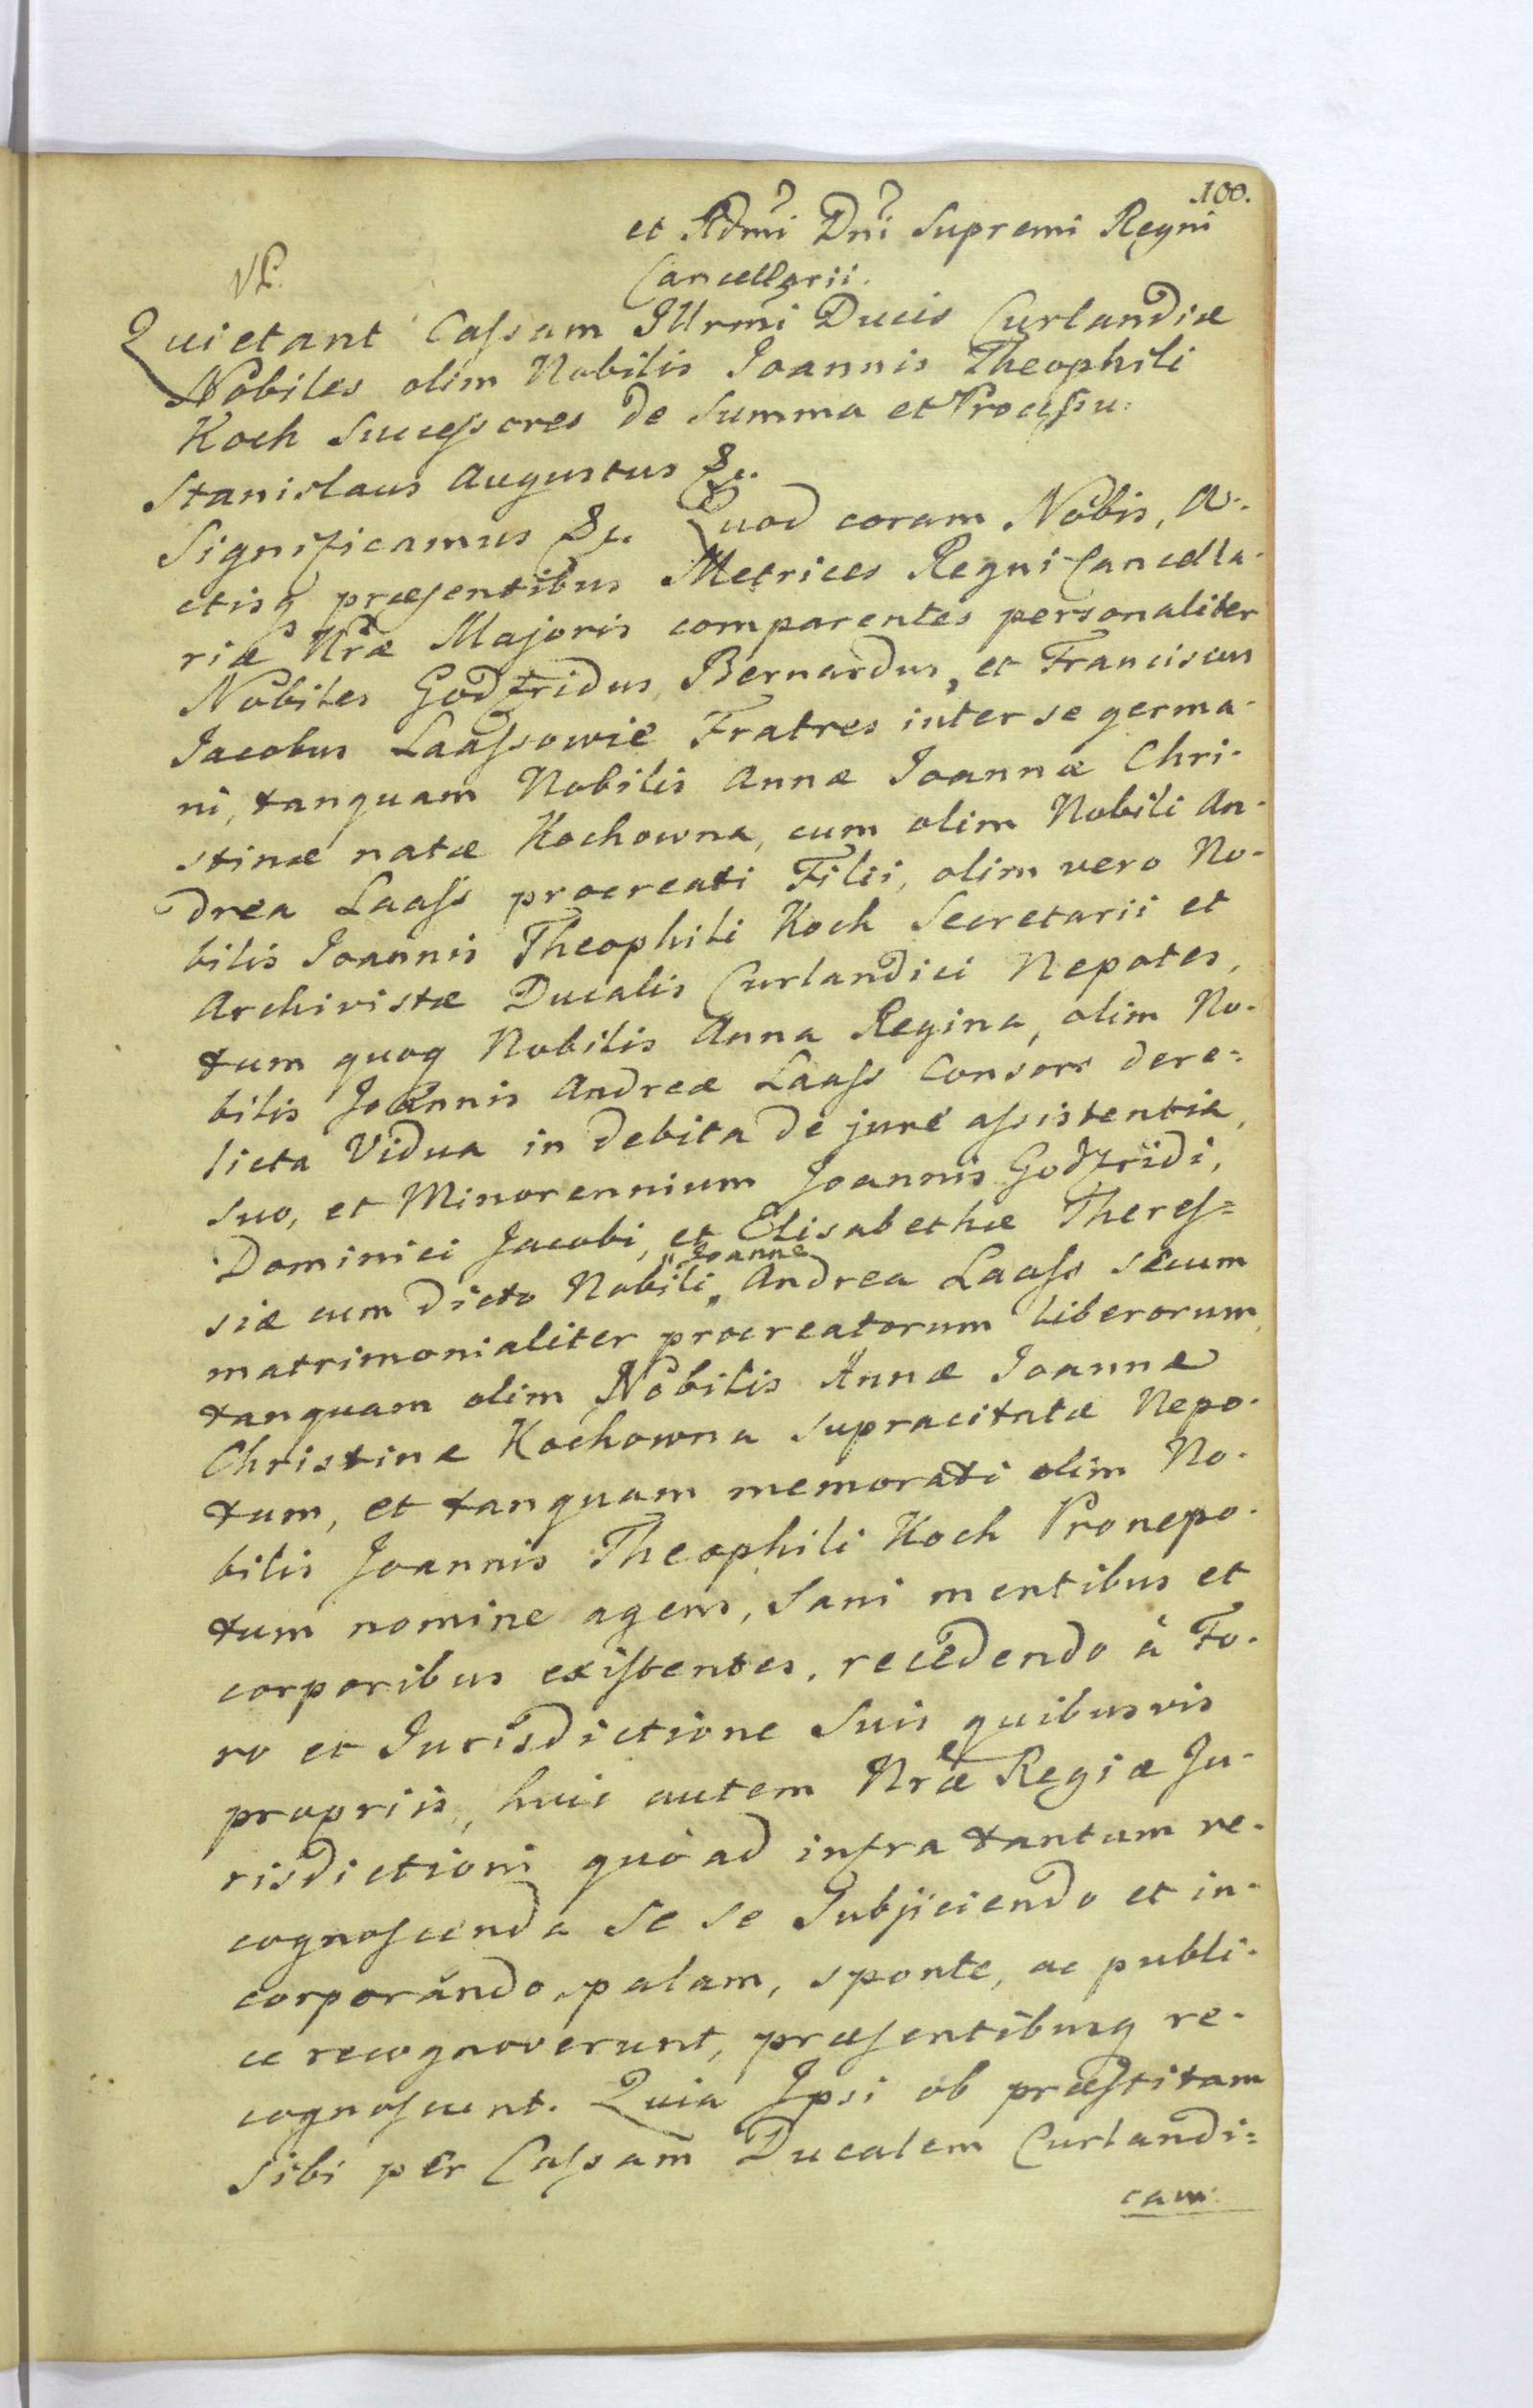 100.
et Rdmi Dni Supremi Regni
Cancellarii.
Quietant Cassam Illrmi Ducis Curlandiæ
Nobiles olim Nobilis Joannis Theophili
Koch Successores de Summa et Processu.
Stanislaus Augustus &c.
Significamus &c. Quod coram Nobis, A-
ctisq præsentibus Metrices Regni Cancella-
riæ Nræ Majoris comparentes personaliter
Nobiles Godfridus, Bernardus, et Franciscus
Jacobus Laassowie Fratres inter se germa-
ni, tanquam Nobilis Annæ Joannæ Chri-
stinæ natæ Kochowna, cum olim Nobili An-
drea Laass procreati Filii, olim vero No-
bilis Joannis Theophili Koch Secretarii et
Archivistæ Ducalis Curlandici Nepotes,
tum quoq Nobilis Anna Regina, olim No-
bilis Joannis Andreæ Laass Consors dere=
licta Vidua in debita de jure assistentia,
suo, et Minorennium Joannis Godfridi,
Dominici Jacobi, et Elisabethæ Theres=
siæ cum dicto Nobili „ Joanne „ Andrea Laass secum
matrimonialiter procreatorum liberorum,
tanquam olim Nobilis Annæ Joannæ
Christinæ Kochowna supracitatæ Nepo-
tum, et tanquam memorati olim No-
bilis Joannis Theophili Koch Pronepo-
tum nomine agens, Sani mentibus et
corporibus existentes, recedendo à Fo-
ro et Jurisdictione Suis quibusvis
propriis, huic autem Nræ Regiæ Ju-
risdictioni quò ad infra tantum re-
cognoscenda Se se Subjiciendo et in-
corporando, palam, sponte, ac publi-
ce recognoverunt, præsentibusq re-
cognoscunt. Quia Ipsi ob præstitam
Sibi per Cassam Ducalem Curlandi=
cam